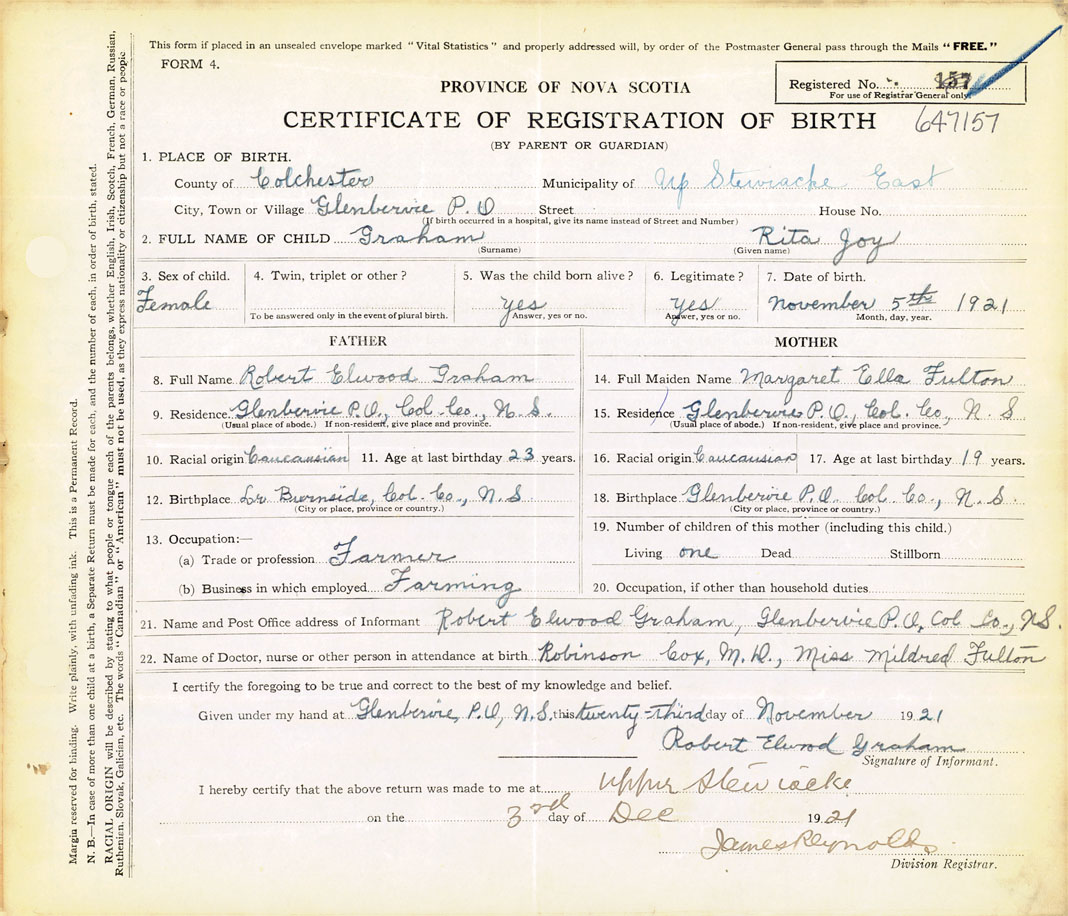 This form if placed in an unsealed envelope marked "Vital Statistics" and properly addressed will, by order of the Postmaster General pass through the Mails "FREE."
FORM 4.
Registered No. 157
For use of Registrar General only.
PROVINCE OF NOVA SCOTIA
CERTIFICATE OF REGISTRATION OF BIRTH 647157
(BY PARENT OR GUARDIAN)
1. PLACE OF BIRTH.
County of Colchester Municipality of Up Stewiacke East
City, Town or Village Glenbervie P.O Street House No.
(If birth occurred in a hospital, give its name instead of Street and Number)
2. FULL NAME OF CHILD Graham Rita Joy
(Surname) (Given name)
3. Sex of child. 4. Twin, triplet or other? 5. Was the child born alive? 6. Legitimate? 7. Date of birth.
Female yes yes November 5th 1921
To be answered only in the event of plural birth. Answer, yes or no. Answer, yes or no. Month, day, year.
FATHER MOTHER
8. Full Name Robert Elwood Graham 14. Full Maiden Name Margaret Ella Fulton
9. Residence Glenbervie P.O., Col. Co., N.S. 15. Residence Glenbervie P.O., Col. Co., N.S
(Usual place of abode.) If non-resident, give place and province. (Usual place of abode.) If non-resident, give place and province.
10. Racial origin Caucausian 11. Age at last birthday 23 years. 16. Racial origin Caucausian 17. Age at last birthday 19 years.
12. Birthplace Lr Burnside, Col. Co., N.S 18. Birthplace Glenbervie P.O. Col. Co., N.S.
(City or place, province or country.) (City or place, province or country.)
19. Number of children of this mother (including this child.)
13. Occupation:—
(a) Trade or profession Farmer Living one Dead Stillborn
(b) Business in which employed Farming 20. Occupation, if other than household duties
21. Name and Post Office address of Informant Robert Elwood Graham, Glenbervie P.O, Col Co., N.S.
22. Name of Doctor, nurse or other person in attendance at birth Robinson Cox, M.D., Miss Mildred Fulton
I certify the foregoing to be true and correct to the best of my knowledge and belief.
Given under my hand at Glenbervie, P.O, N.S. this twenty-third day of November 1921
Robert Elwood Graham
Signature of Informant.
I hereby certify that the above return was made to me at Upper Stewiacke
on the 3rd day of Dec 1921
James Reynolds
Division Registrar.
Margin reserved for binding. Write plainly, with unfading ink. This is a Permanent Record.
N. B.—In case of more than one child at a birth, a Separate Return must be made for each, and the number of each, in order of birth, stated.
RACIAL ORIGIN will be described by stating to what people or tongue each of the parents belongs, whether English, Irish, Scotch, French, German, Russian,
Ruthenian, Slovak, Galician, etc. The words "Canadian" or "American" must not be used, as they express nationality or citizenship but not a race or people